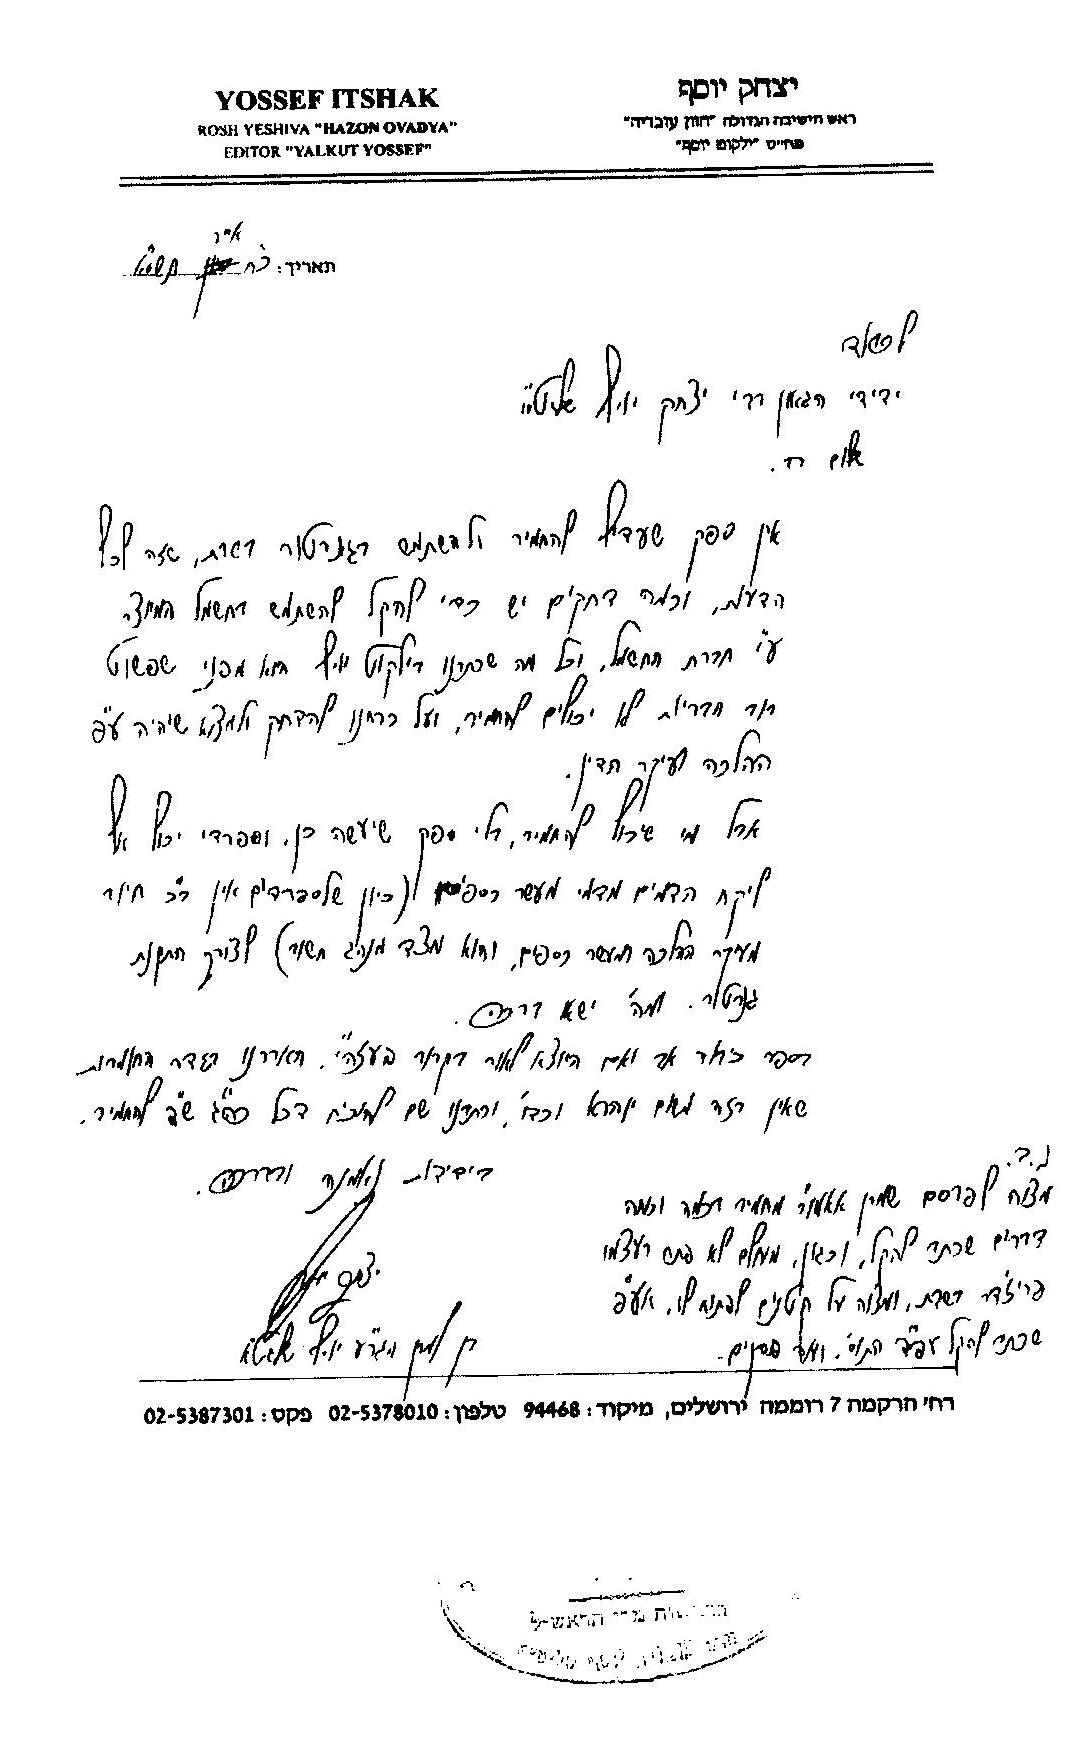 YOSSEF ITSHAK
ROSH YESHIVA "HAZON OVADYA"
EDITOR "YALKUT YOSSEF"
יצחק יוסף
ראש הישיבה הגדולה "חזון עובדיה"
מח"ס "ילקוט יוסף"
תאריך: כ"ח אייר
לכבוד
ידידי הגאון רבי יצחק יוסף שליט"א
שלום רב.
אין ספק שעדיף להחמיר ולהשתמש בגנרטור בשבת, שזה לכל
הדעות, וכמה דחקים יש כדי להקל להשתמש בחשמל המיוצר
ע"י חברת החשמל, וכל מה שכתבנו בילקוט יוסף הוא מפני שפשוט
רוב הצבור לא יכולים להחמיר, ועל כרחנו להדחק ולמצוא שיהיה ע"פ
ההלכה ועיקר הדין.
אבל מי שיכול להחמיר, בלי ספק שיעשה כן, וספרדי יכול אף
ליקח הדמים מדמי מעשר כספים (כיון שלספרדים אין כ"כ חיוב
מעיקר ההלכה במעשר כספים, והוא מצד מנהג חשוב) לצורך התקנת
גנרטור. ומה' ישא ברכה.
בספר כבוד אב ואם היוצא לאור בקרוב בעזה"י, הארכנו בגדר החומרות
שאין בזה משום יוהרא וכבו', וכתבנו שם להוכיח דבכל כה"ג ש"ד להחמיר.
בידידות נאמנה ובברכה.
יצחק יוסף
בן לאמו"ר הגר"ע יוסף שליט"א
נ.ב.
מצוה לפרסם שמרן אאמו"ר מחמיר בכמה וכמה
דברים שכתב להקל, וכגון, מעולם לא פתח בעצמו
פריג'דר בשבת, ומצוה על קטנים לפתוח לו, אע"פ
שכתב להקל עפ"ד התוס'. ועוד
רח' הרקמה 7 רוממה ירושלים, מיקוד: 94468 טלפון: 02-5378010 פקס: 02-5387301